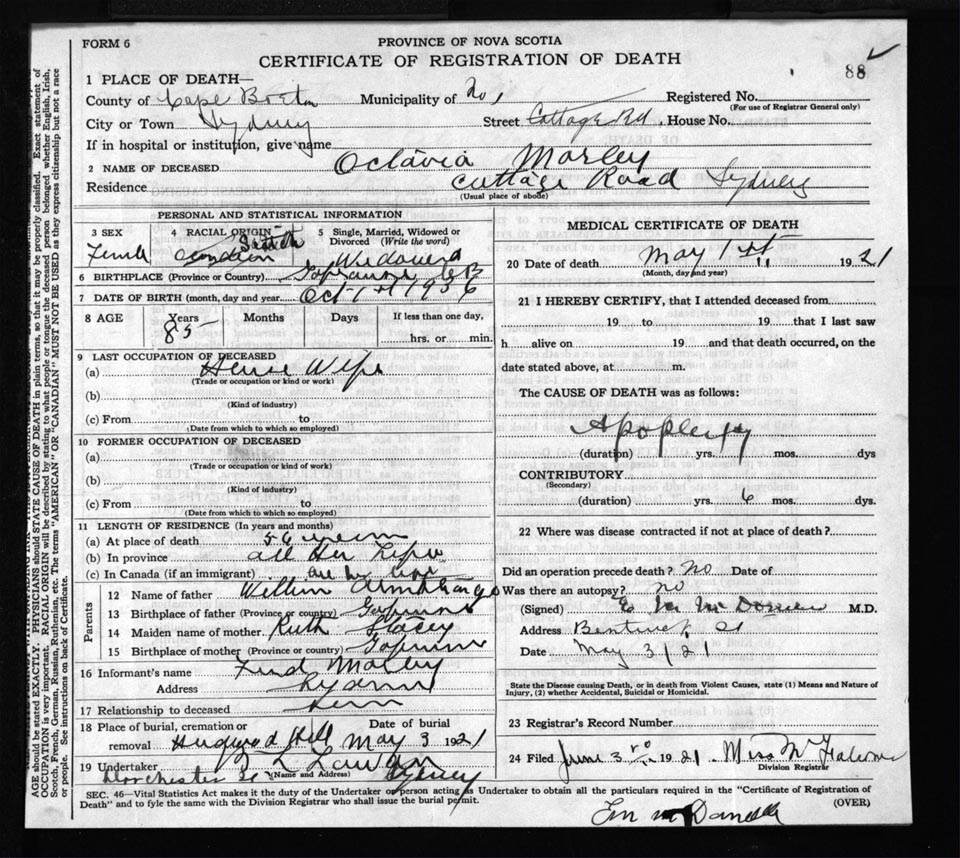 FORM 6
PROVINCE OF NOVA SCOTIA
CERTIFICATE OF REGISTRATION OF DEATH
88
1 PLACE OF DEATH—
County of Cape Breton Municipality of Registered No.
(For use of Registrar General only)
City or Town Sydney Street Cottage Rd. House No.
If in hospital or institution, give name
2 NAME OF DECEASED Octavia Morley
Residence Cottage Road Sydney
(Usual place of abode)
PERSONAL AND STATISTICAL INFORMATION
3 SEX 4 RACIAL ORIGIN 5 Single, Married, Widowed or Divorced (Write the word)
Female Widowed
6 BIRTHPLACE (Province or Country) C B
7 DATE OF BIRTH (month, day and year) Oct 1st
8 AGE Years Months Days If less than one day,
85 hrs. or min.
9 LAST OCCUPATION OF DECEASED
(a) House Wife
(Trade or occupation or kind or work)
(b)
(Kind of industry)
(c) From to
(Date from which to which so employed)
10 FORMER OCCUPATION OF DECEASED
(a)
(Trade or occupation or kind of work)
(b)
(Kind of industry)
(c) From to
(Date from which to which so employed)
11 LENGTH OF RESIDENCE (In years and months)
(a) At place of death 56 years
(b) In province all her life
(c) In Canada (if an immigrant) all her life
Parents
12 Name of father William
13 Birthplace of father (Province or country)
14 Maiden name of mother Ruth Stacey
15 Birthplace of mother (Province or country)
16 Informant's name Morley
Address Sydney
17 Relationship to deceased
18 Place of burial, cremation or removal Hill Date of burial May 3 1921
19 Undertaker
(Name and Address)
Dorchester St Sydney
MEDICAL CERTIFICATE OF DEATH
20 Date of death May 1st 1921
(Month, day and year)
21 I HEREBY CERTIFY, that I attended deceased from
19 to 19 that I last saw
h alive on 19 and that death occurred, on the
date stated above, at m.
The CAUSE OF DEATH was as follows:
Apoplexy
(duration) yrs. mos. dys
CONTRIBUTORY
(Secondary)
(duration) yrs. 6 mos. dys.
22 Where was disease contracted if not at place of death?
Did an operation precede death? No Date of
Was there an autopsy? no
(Signed) M.D.
Address Bentinck St
Date May 3/21
State the Disease causing Death, or in death from Violent Causes, state (1) Means and Nature of Injury, (2) whether Accidental, Suicidal or Homicidal.
23 Registrar's Record Number
24 Filed June 3rd 1921 Miss
Division Registrar
SEC. 46—Vital Statistics Act makes it the duty of the Undertaker or person acting as Undertaker to obtain all the particulars required in the "Certificate of Registration of
Death" and to fyle the same with the Division Registrar who shall issue the burial permit. (OVER)
AGE should be stated EXACTLY. PHYSICIANS should STATE CAUSE OF DEATH in plain terms, so that it may be properly classified. Exact statement of
OCCUPATION is very important. RACIAL ORIGIN will be described by stating to what people or tongue the deceased person belonged whether English, Irish,
Scotch, French, German, Russian, Ruthenian, etc. The terms "AMERICAN" OR "CANADIAN" MUST NOT BE USED as they express citizenship but not a race
or people. See instructions on back of Certificate.